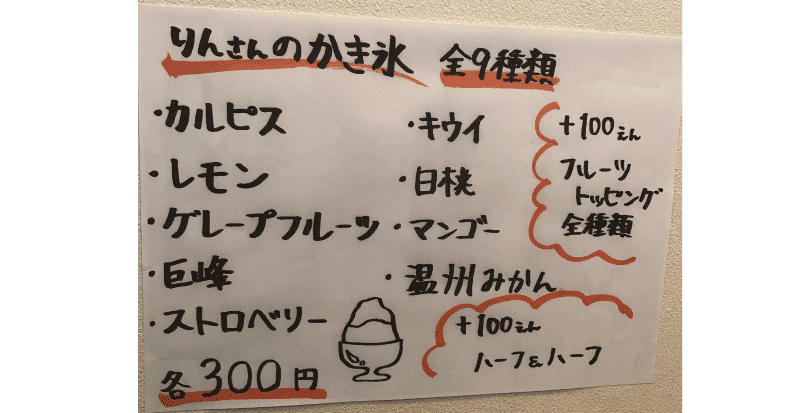 りんさんのかき氷 全9種類
・カルピス
・レモン
・グレープフルーツ
・巨峰
・ストロベリー
各300円
・キウイ
・白桃
・マンゴー
・温州みかん
+100えん
フルーツ
トッピング
全種類
+100えん
ハーフ&ハーフ